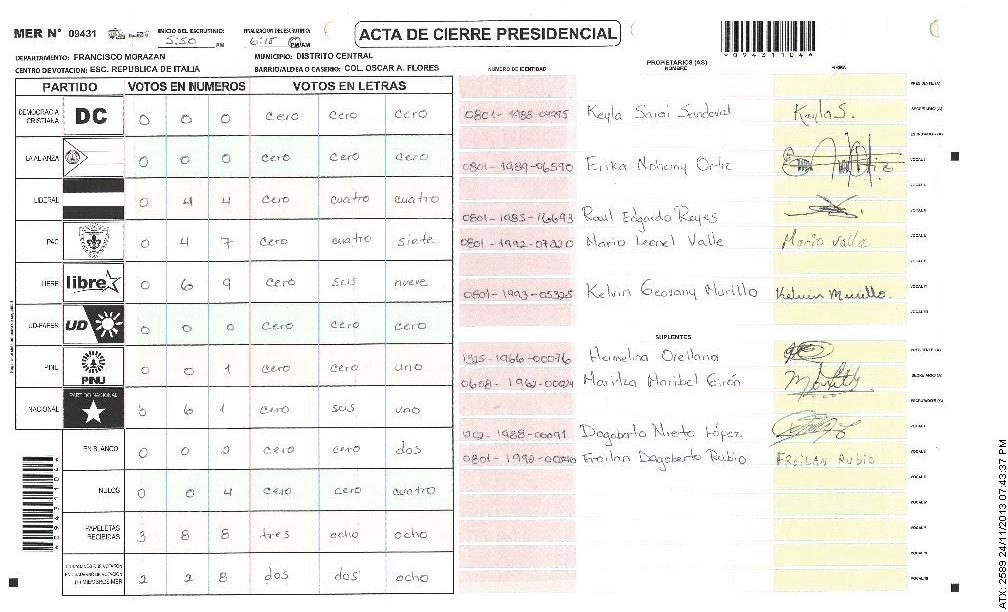 MER N° 09431
INICIO DEL ESCRUTINIO: 5:50 PM
FINALIZACION DEL ESCRUTINIO: 6:15 PM/AM
ACTA DE CIERRE PRESIDENCIAL
DEPARTAMENTO: FRANCISCO MORAZAN
MUNICIPIO: DISTRITO CENTRAL
CENTRO DE VOTACION: ESC. REPUBLICA DE ITALIA
BARRIO/ALDEA O CASERIO: COL. OSCAR A. FLORES
NUMERO DE IDENTIDAD
PROPIETARIOS (AS)
NOMBRE
FIRMA
PARTIDO VOTOS EN NUMEROS VOTOS EN LETRAS
DEMOCRACIA CRISTIANA DC 0 0 0 cero cero cero
LA ALIANZA 0 0 0 cero cero cero
LIBERAL 0 4 4 cero cuatro cuatro
PAC 0 4 7 cero cuatro siete
LIBRE libre 0 6 9 cero seis nueve
UD-FAPER UD 0 0 0 cero cero cero
PINU PINU 0 0 1 cero cero uno
NACIONAL PARTIDO NACIONAL 0 6 1 cero seis uno
EN BLANCO 0 0 2 cero cero dos
NULOS 0 0 4 cero cero cuatro
PAPELETAS RECIBIDAS 3 8 8 tres ocho ocho
CIUDADANOS QUE VOTARON EN CUADERNO DE VOTACION (+) MIEMBROS MER 2 2 8 dos dos ocho
PRESIDENTE (A)
Keyla Sarai Sandoval Keyla S. SECRETARIO (A)
ESCRUTADOR (A)
0801-1989-06590 Erika Nohemy Ortiz VOCAL I
0801-1985-16693 Raul Edgardo Reyes
Mario Leonel Valle Mario Valle
0801-1993-05325 Kelvin Geovany Murillo Kelvin Murillo.
SUPLENTES
Hermelina Orellana PRESIDENTE (A)
Maritza Maribel Girón SECRETARIO (A)
ESCRUTADOR (A)
Dagoberto Nieto López VOCAL I
Froilan Dagoberto Rubio FROILAN RUBIO
ATX: 2589 24/11/2013 07:43:37 PM